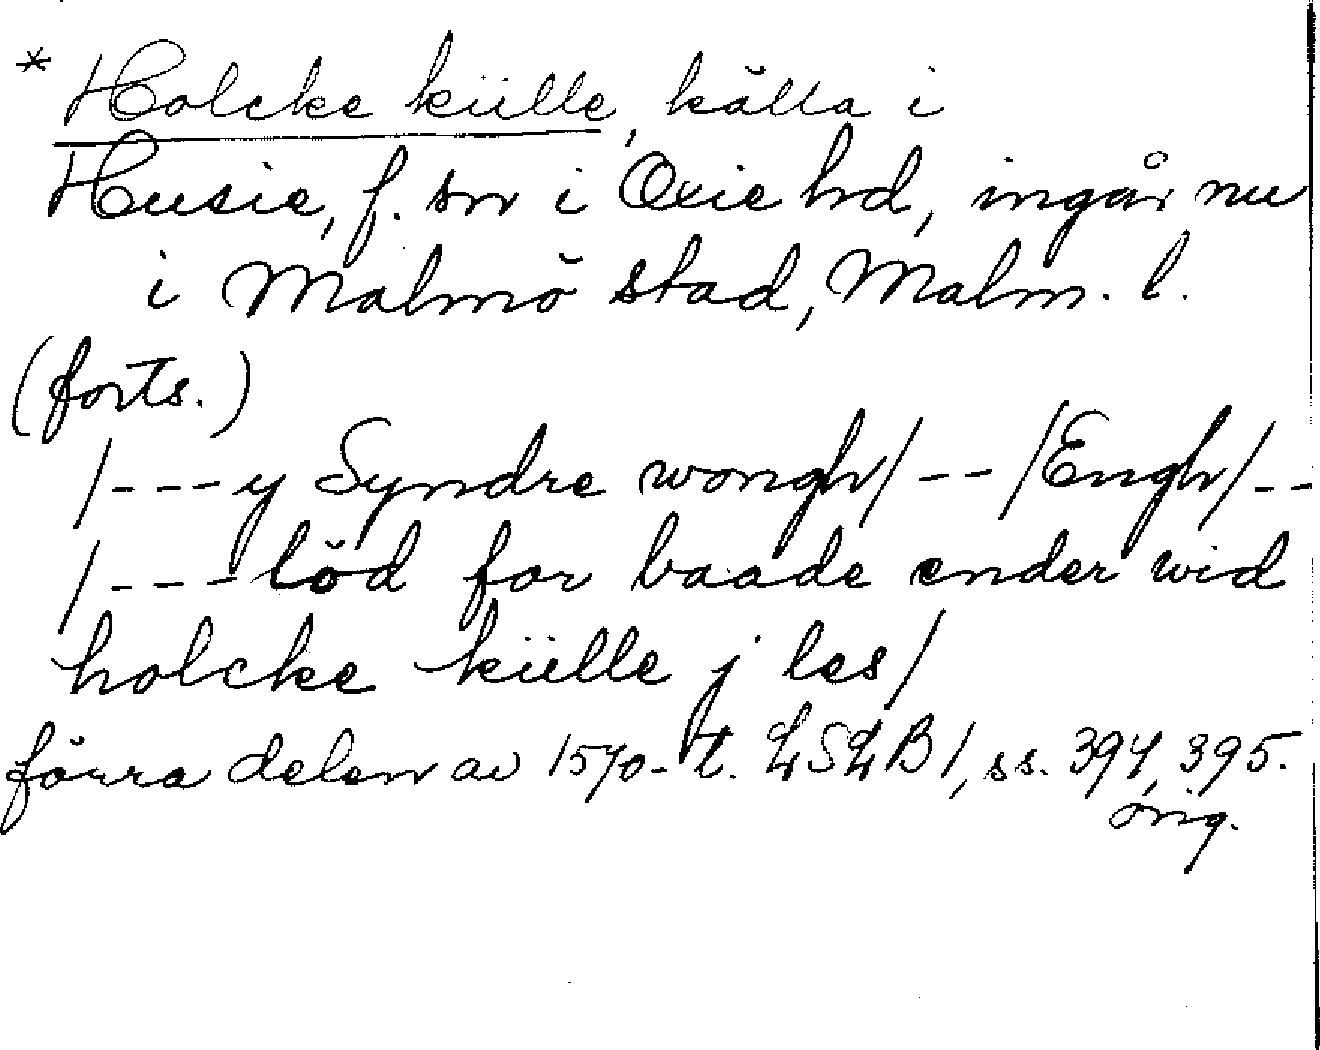 * Holcke kiille, källa i
Husie, f. sn i Oxie hd, ingår nu
i Malmö stad, Malm. l.
(forts.)
/---y Syndre wongh/--/Engh/--
/---löd for baade ender wid
holcke kiille j les/
förra delen av 1570-t. LSLB 1, ss. 394, 395.
orig.